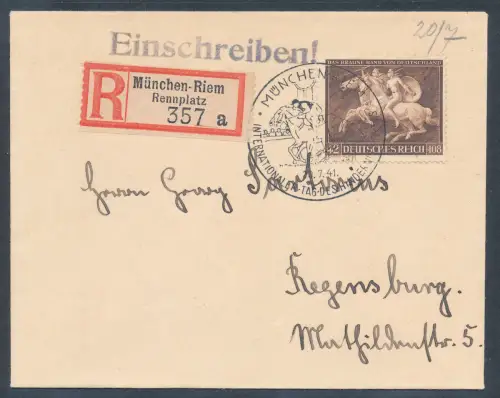 20/7
Einschreiben!
R
München-Riem
Rennplatz
357 a
MÜNCHEN
INTERNATIONALER-TAG-DES
7.41.
DAS BRAUNE BAND VON DEUTSCHLAND
42 DEUTSCHES REICH 108
Herrn Georg
Regensburg.
Mathildenstr. 5.